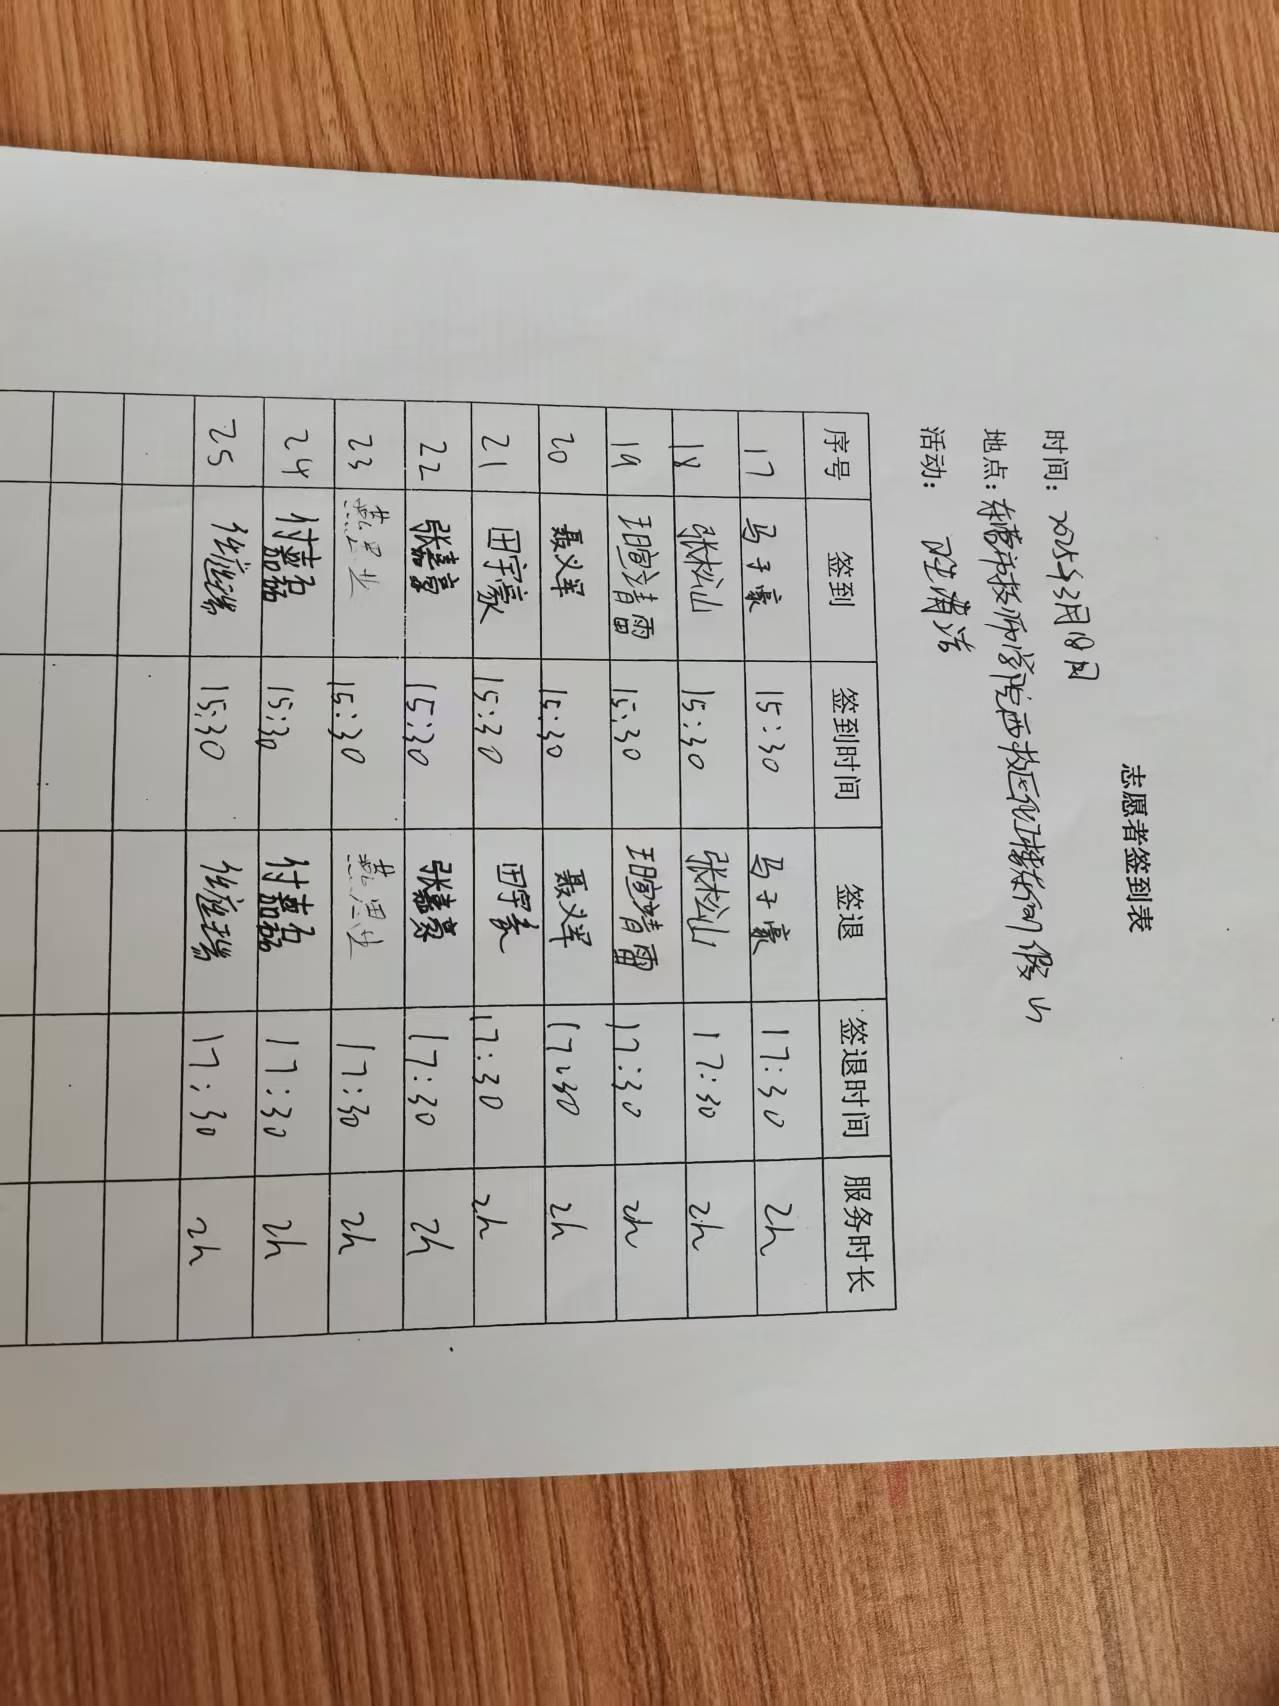 志愿者签到表
时间：2025年3月18日
地点：东营市技师学院西校区化工楼东侧假山
活动：卫清洁
序号 签到 签到时间 签退 签退时间 服务时长
17 马子豪 15:30 马子豪 17:30 2h
18 张松山 15:30 张松山 17:30 2h
19 15:30 17:30 2h
20 聂义军 15:30 聂义军 17:30 2h
21 田宇豪 15:30 田宇豪 17:30 2h
22 张嘉豪 15:30 张嘉豪 17:30 2h
23 15:30 17:30 2h
24 付嘉磊 15:30 付嘉磊 17:30 2h
25 15:30 17:30 2h